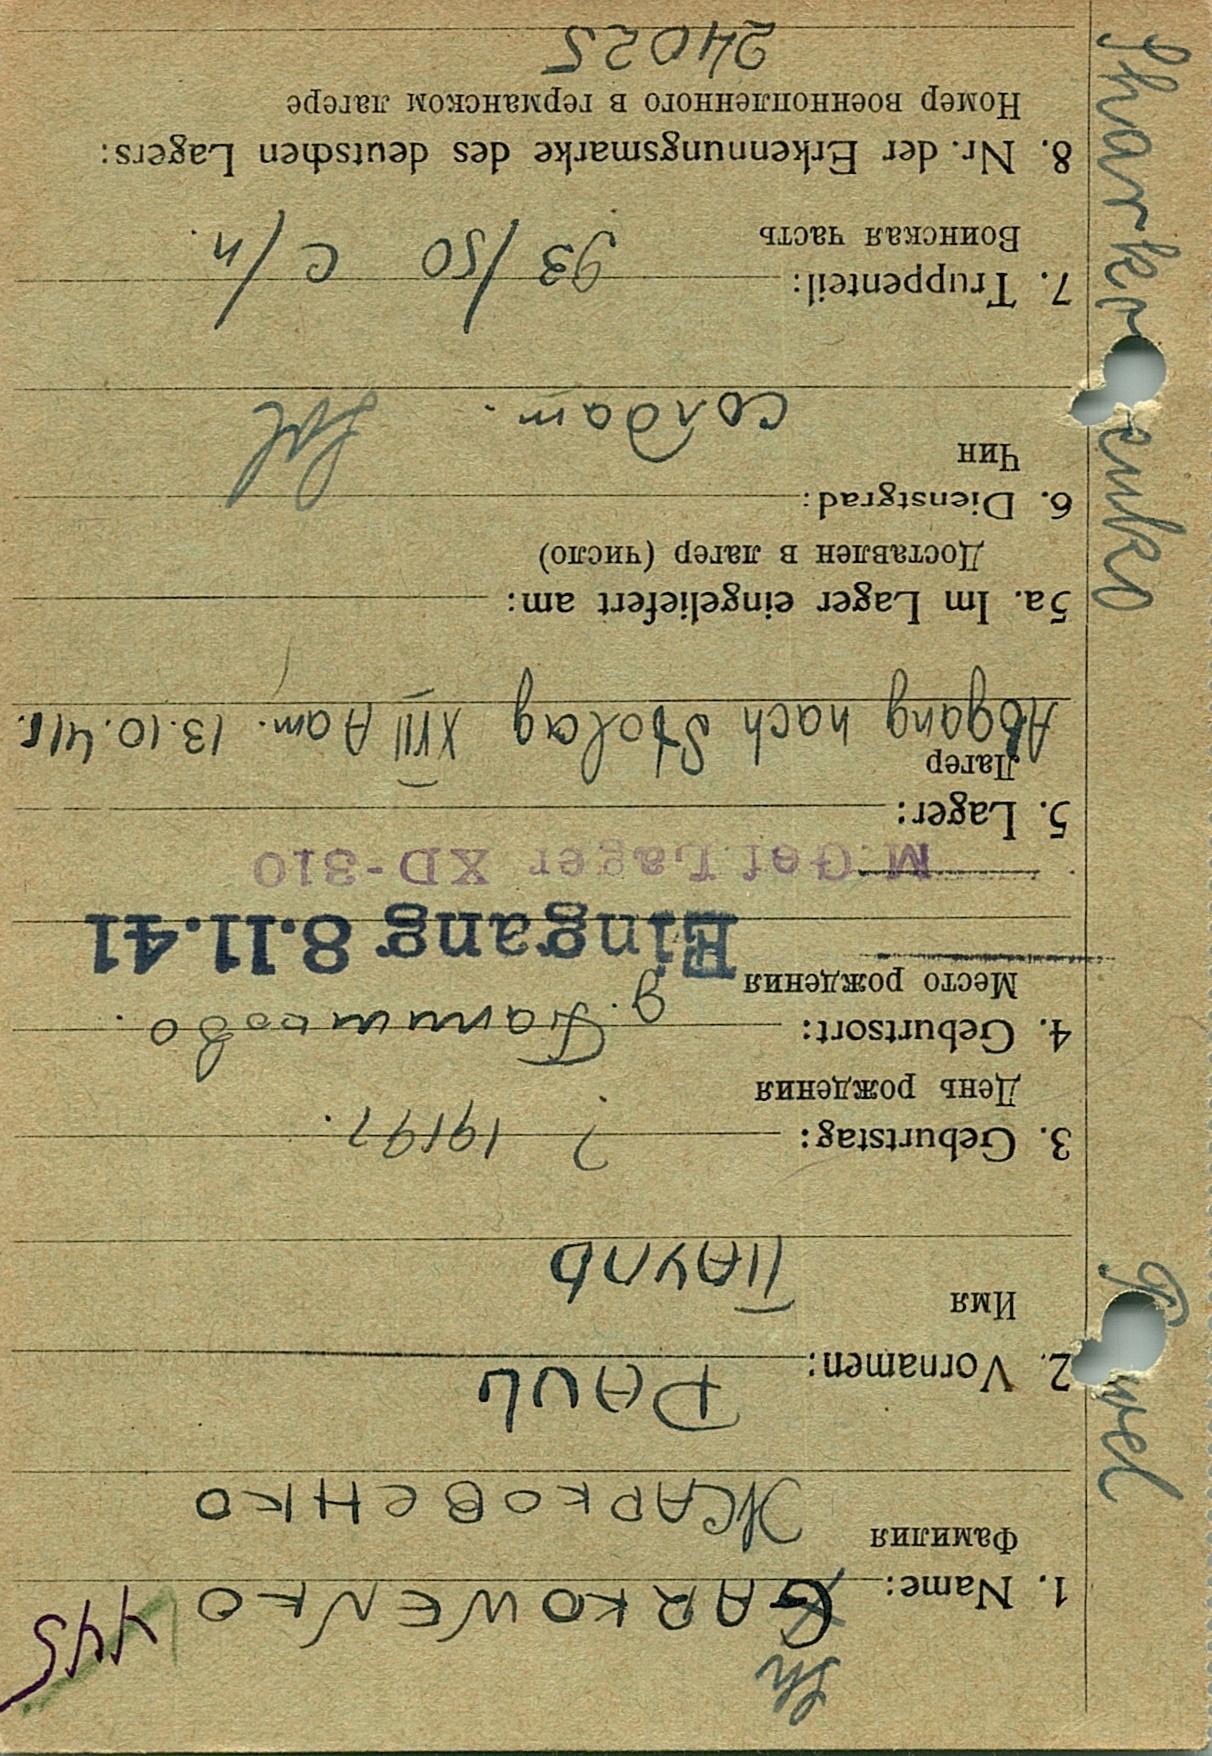 445
Sh
GARKOWENKO
1. Name:
Фамилия
ЖАРКОВЕНКО
PAUL
2. Vornamen:
Имя
ПАУЛЬ
3. Geburtstag: ? 1919?.
День рождения
4. Geburtsort: д.
Место рождения
Eingang 8.11.41
M.Gef.Lager XD-310
5. Lager:
Лагер
Abgang nach Stalag XIII A am. 13.10.41г.
5a. Im Lager eingeliefert am:
Доставлен в лагер (число)
6. Dienstgrad:
Чин
солдат. Sol
7. Truppenteil: 93/50 с/п.
Воинская часть
8. Nr. der Erkennungsmarke des deutschen Lagers:
Номер военнопленного в германском лагере
24025
Sharko enko
P wel